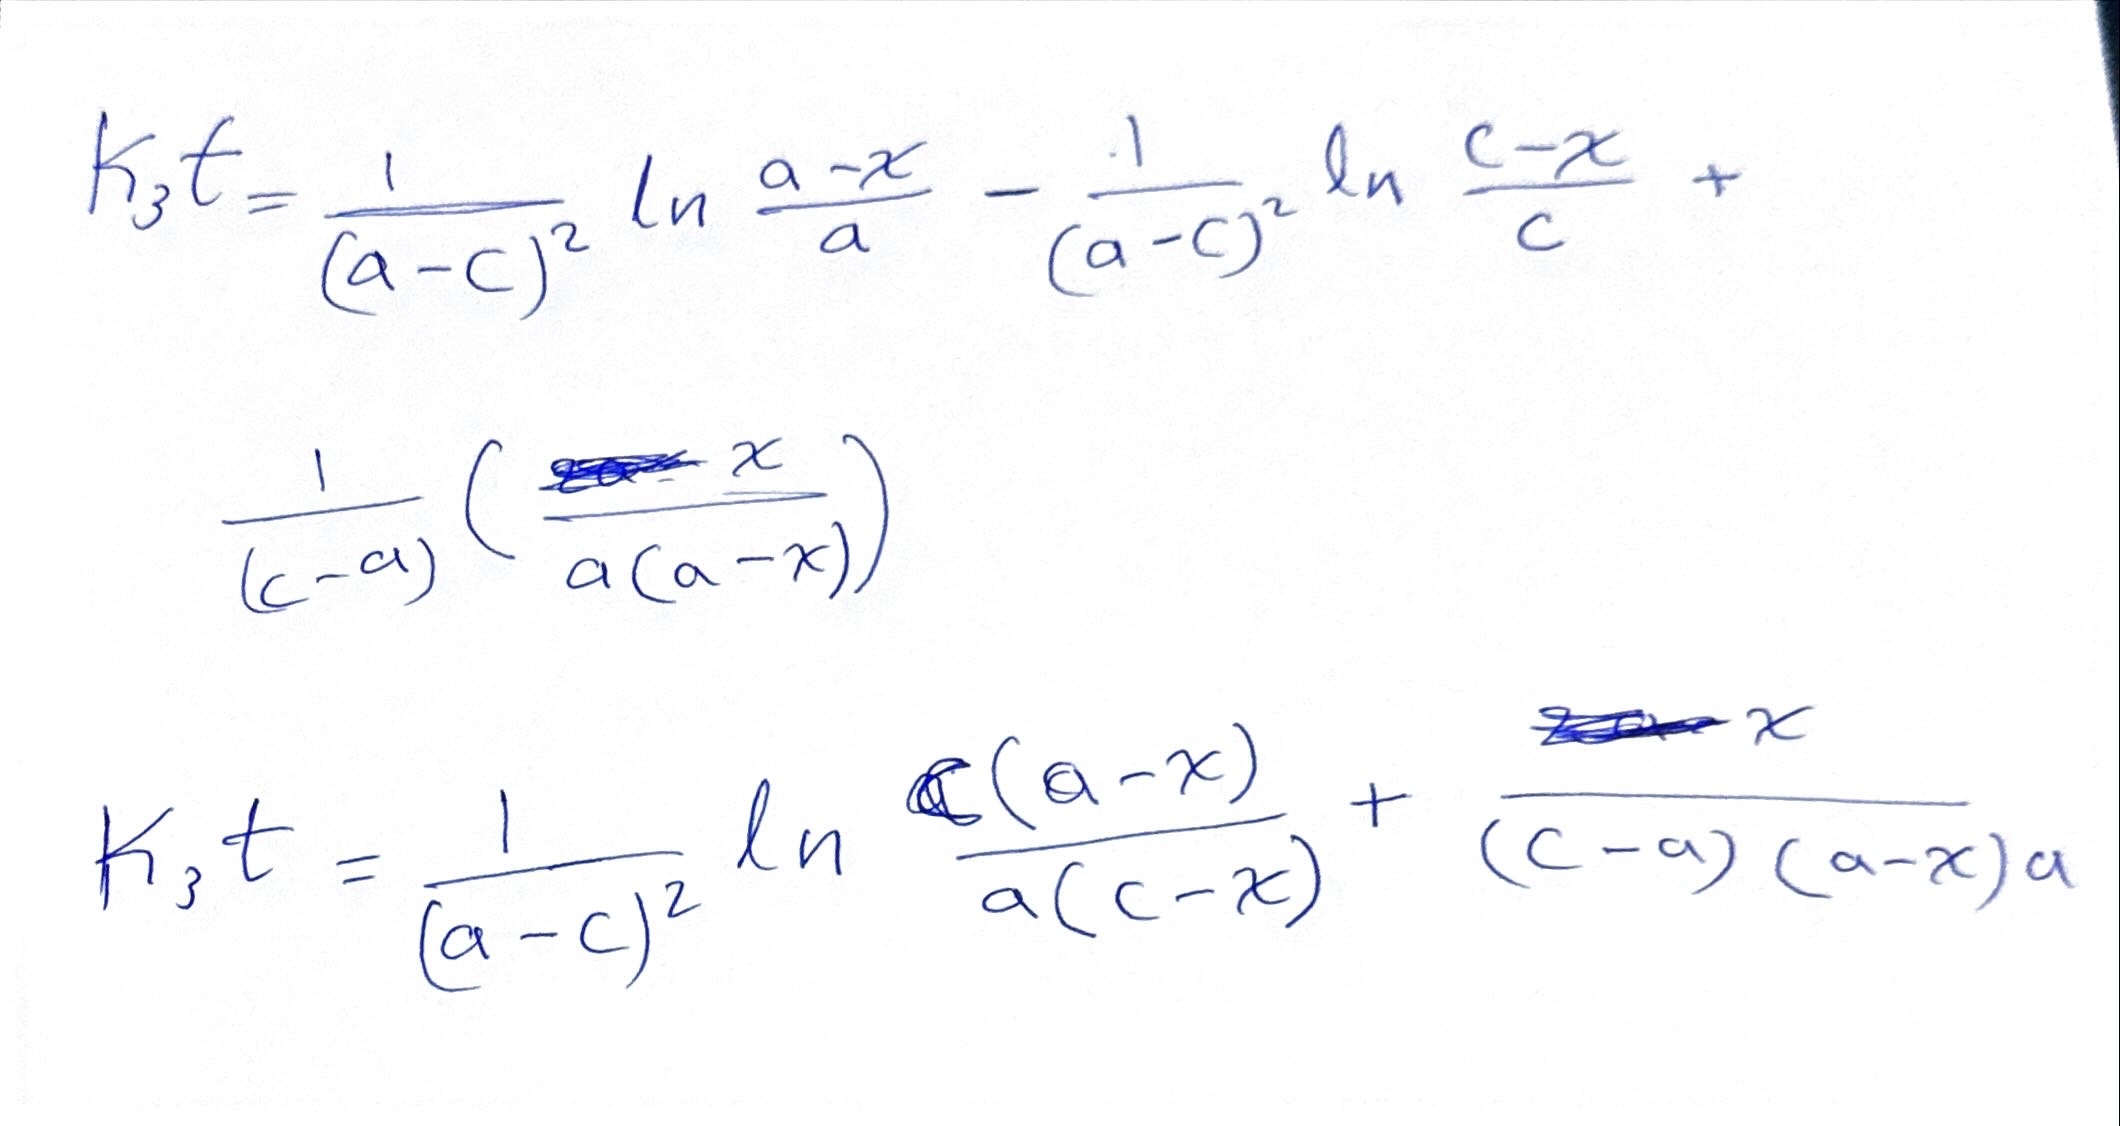 K₃t = 1/(a-c)² ln (a-x)/a - 1/(a-c)² ln (c-x)/c +
1/(c-a) (x/(a(a-x)))
K₃t = 1/(a-c)² ln c(a-x)/(a(c-x)) + x/((c-a)(a-x)a)